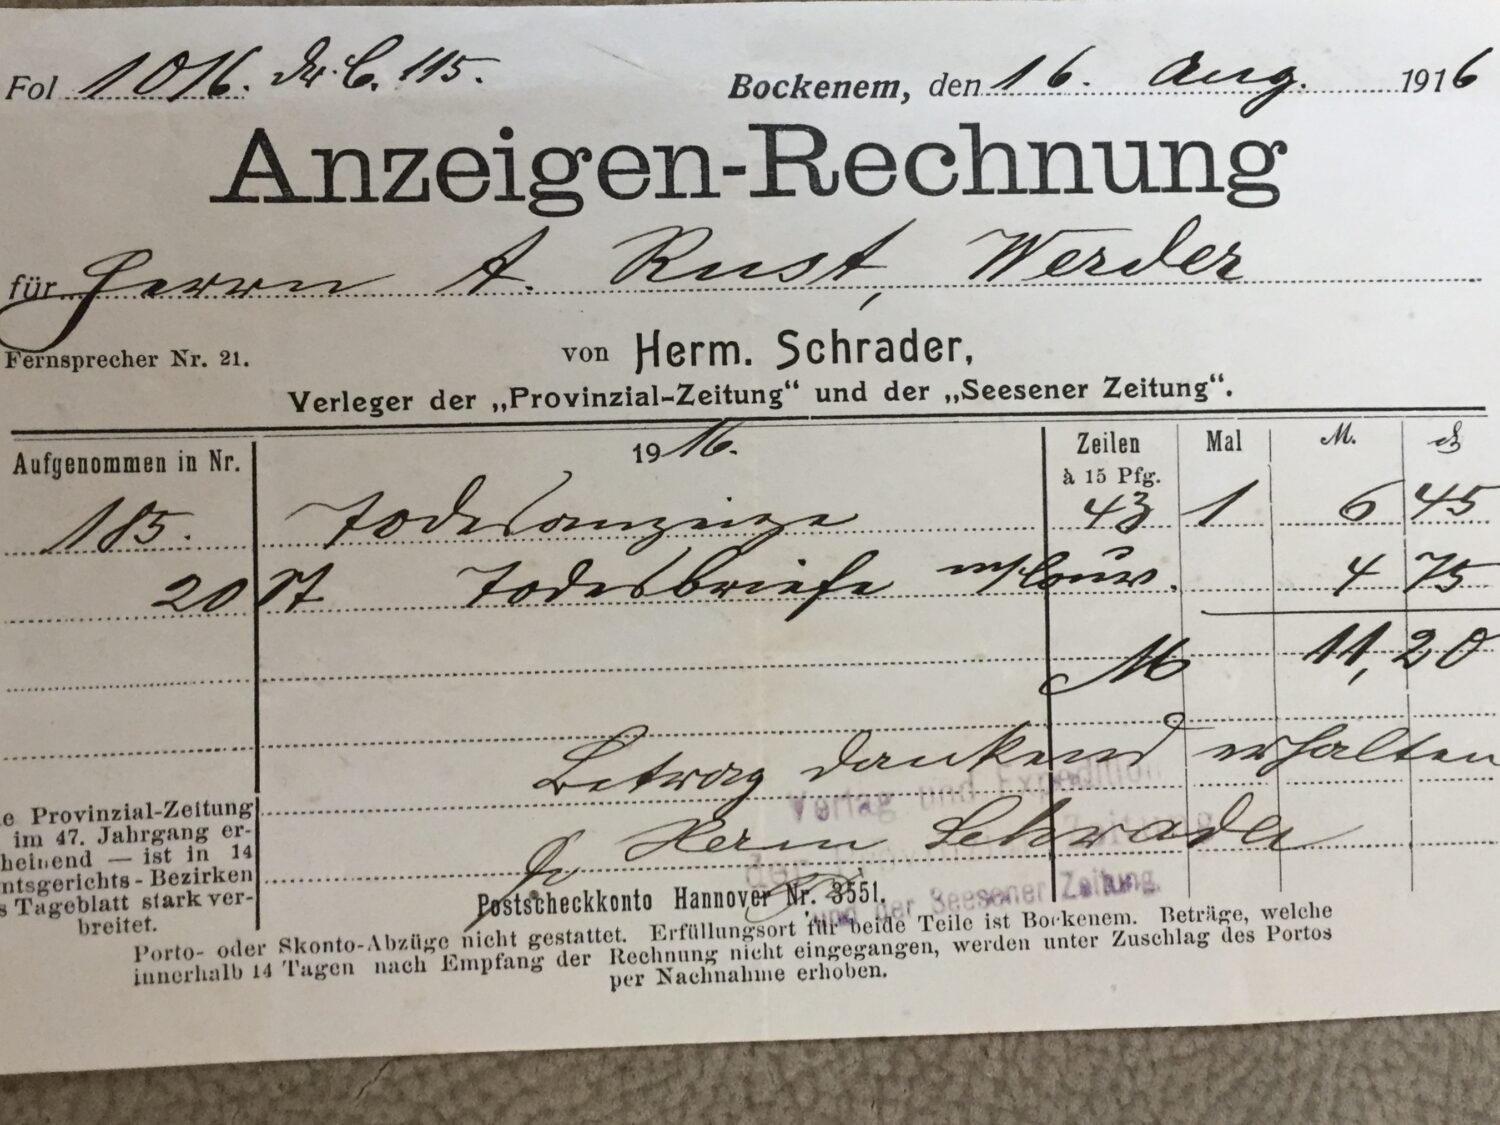 Fol 1016. Dr. C. 115.
Bockenem, den 16. Aug. 1916
Anzeigen-Rechnung
für Herrn A. Rust, Werder
Fernsprecher Nr. 21.
von Herm. Schrader,
Verleger der „Provinzial-Zeitung“ und der „Seesener Zeitung“.
Aufgenommen in Nr. 1916. Zeilen à 15 Pfg. Mal M. ₰
185. Todesanzeige 43 1 6 45
20 St Todesbriefe m/Couv. 4 75
M 11,20
Betrag dankend erhalten
Herm Schrader
Verlag und Expedition
der Zeitung
und der Seesener Zeitung.
e Provinzial-Zeitung
im 47. Jahrgang er-
heinend — ist in 14
ntsgerichts-Bezirken
s Tageblatt stark ver-
breitet.
Postscheckkonto Hannover Nr. 3551.
Porto- oder Skonto-Abzüge nicht gestattet. Erfüllungsort für beide Teile ist Bockenem. Beträge, welche
innerhalb 14 Tagen nach Empfang der Rechnung nicht eingegangen, werden unter Zuschlag des Portos
per Nachnahme erhoben.